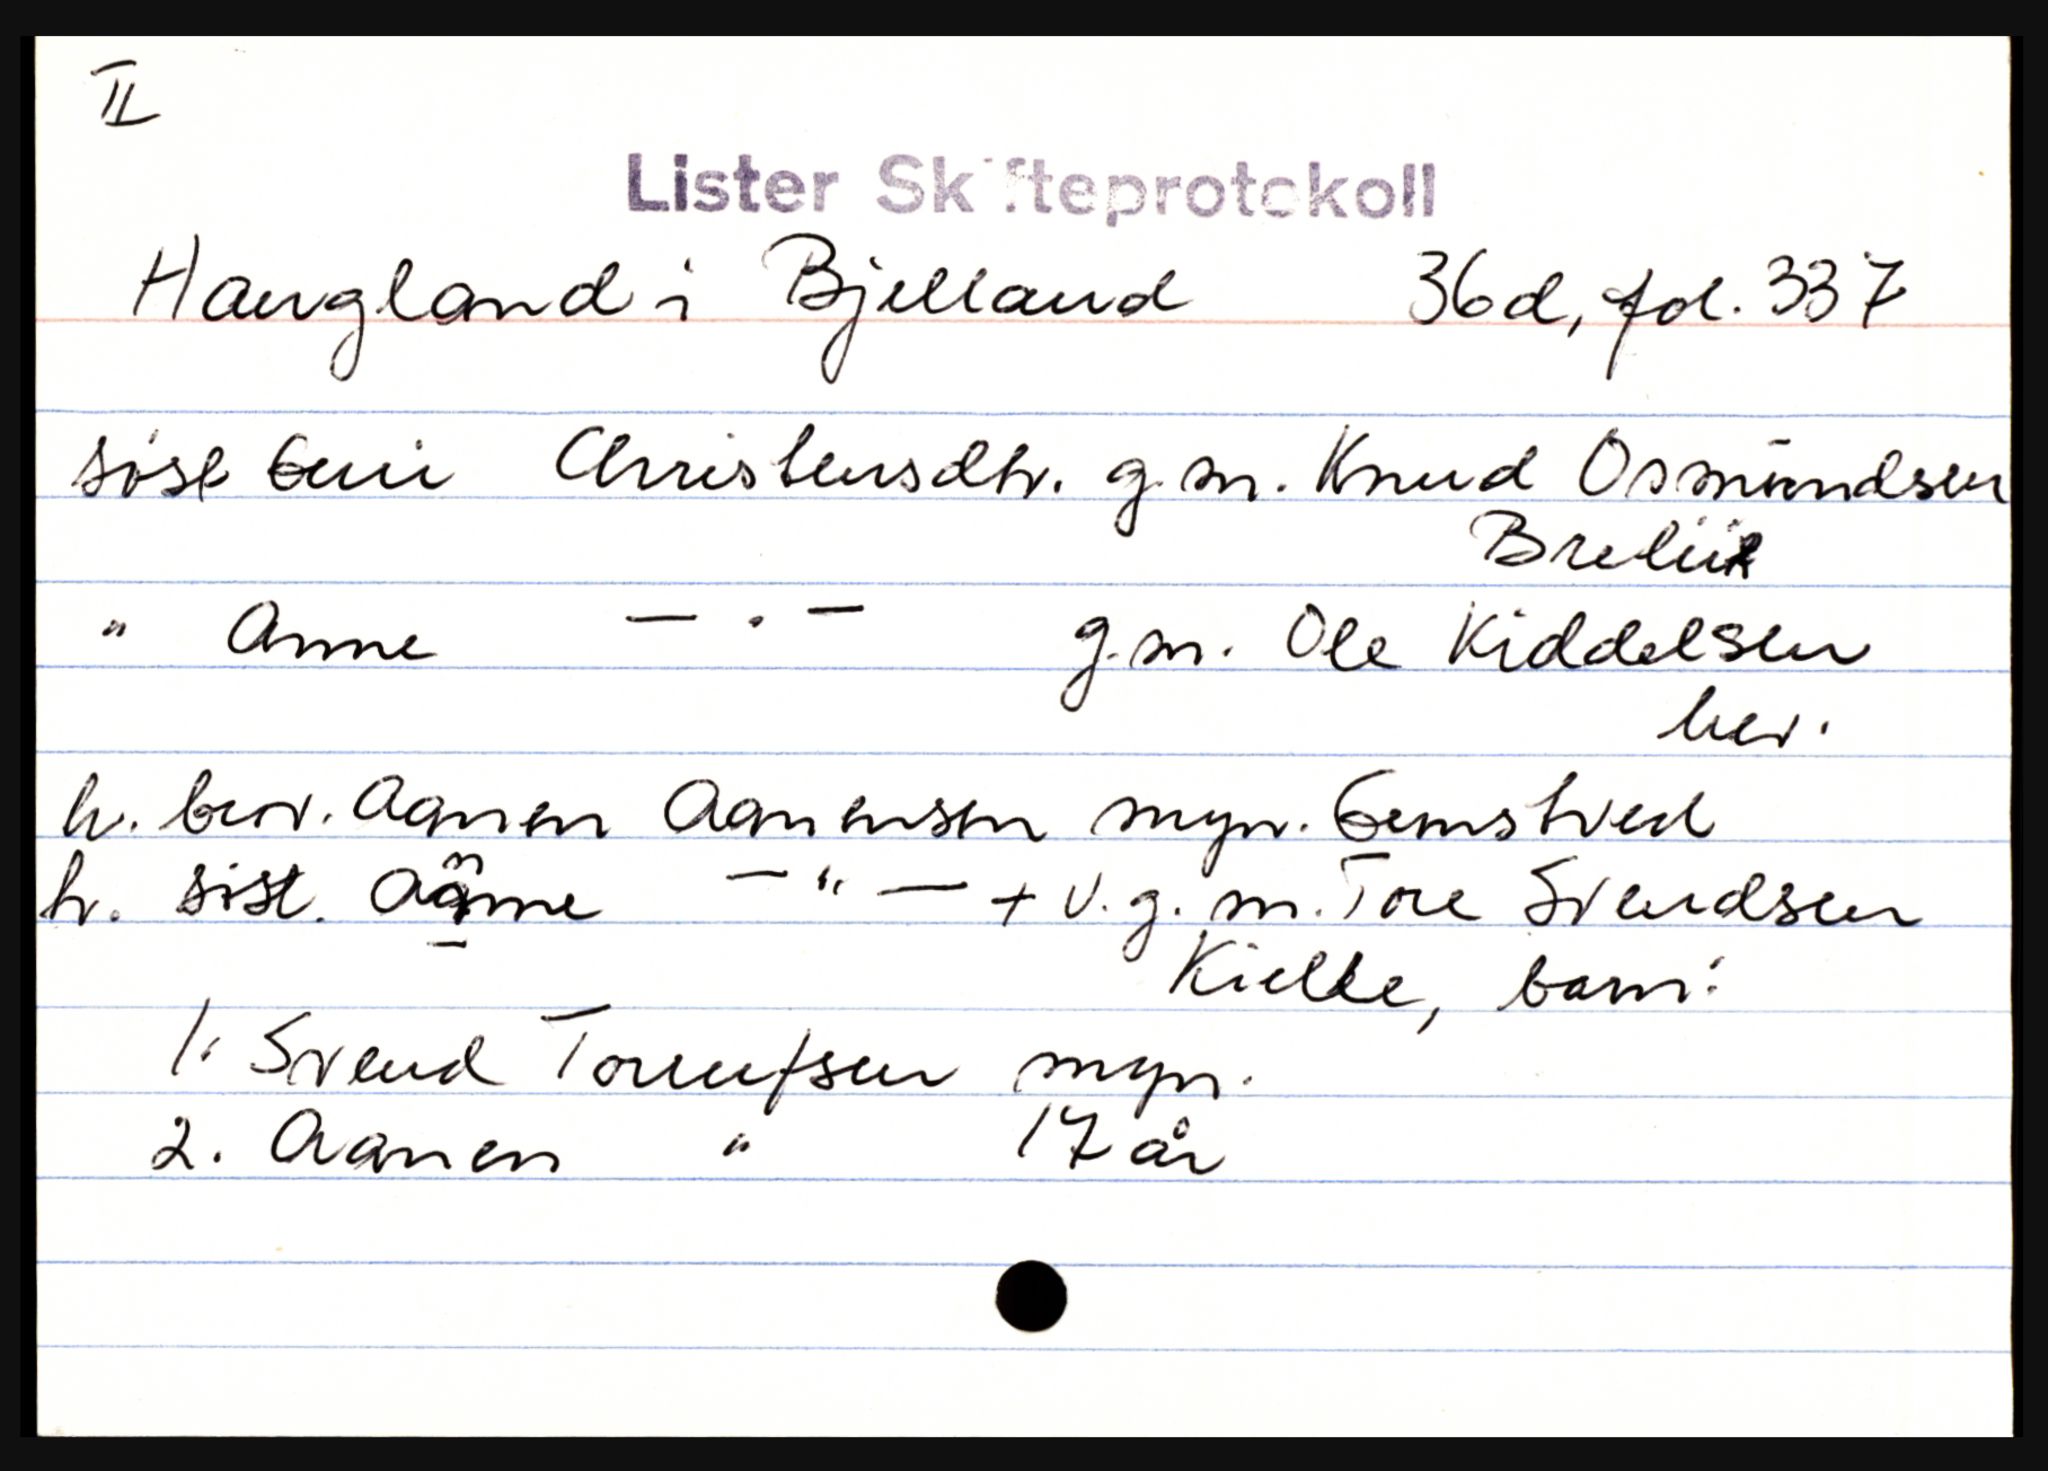 II
Lister Skifteprotokoll
Haugland i Bjelland 36d, fol. 337
søst Guri Christensdtr. g.m. Knud Osmundsen
Breliik
" Anne — " — g.m. Ole Kiddelsen
her.
h. brør. Aanen Aanensen myn. Gemstved
h. sist. Aanne — " — + v. g. m. Tore Svendsen
Kielle, barn:
1. Svend Torrufsen myn.
2. Aanen " 17 år